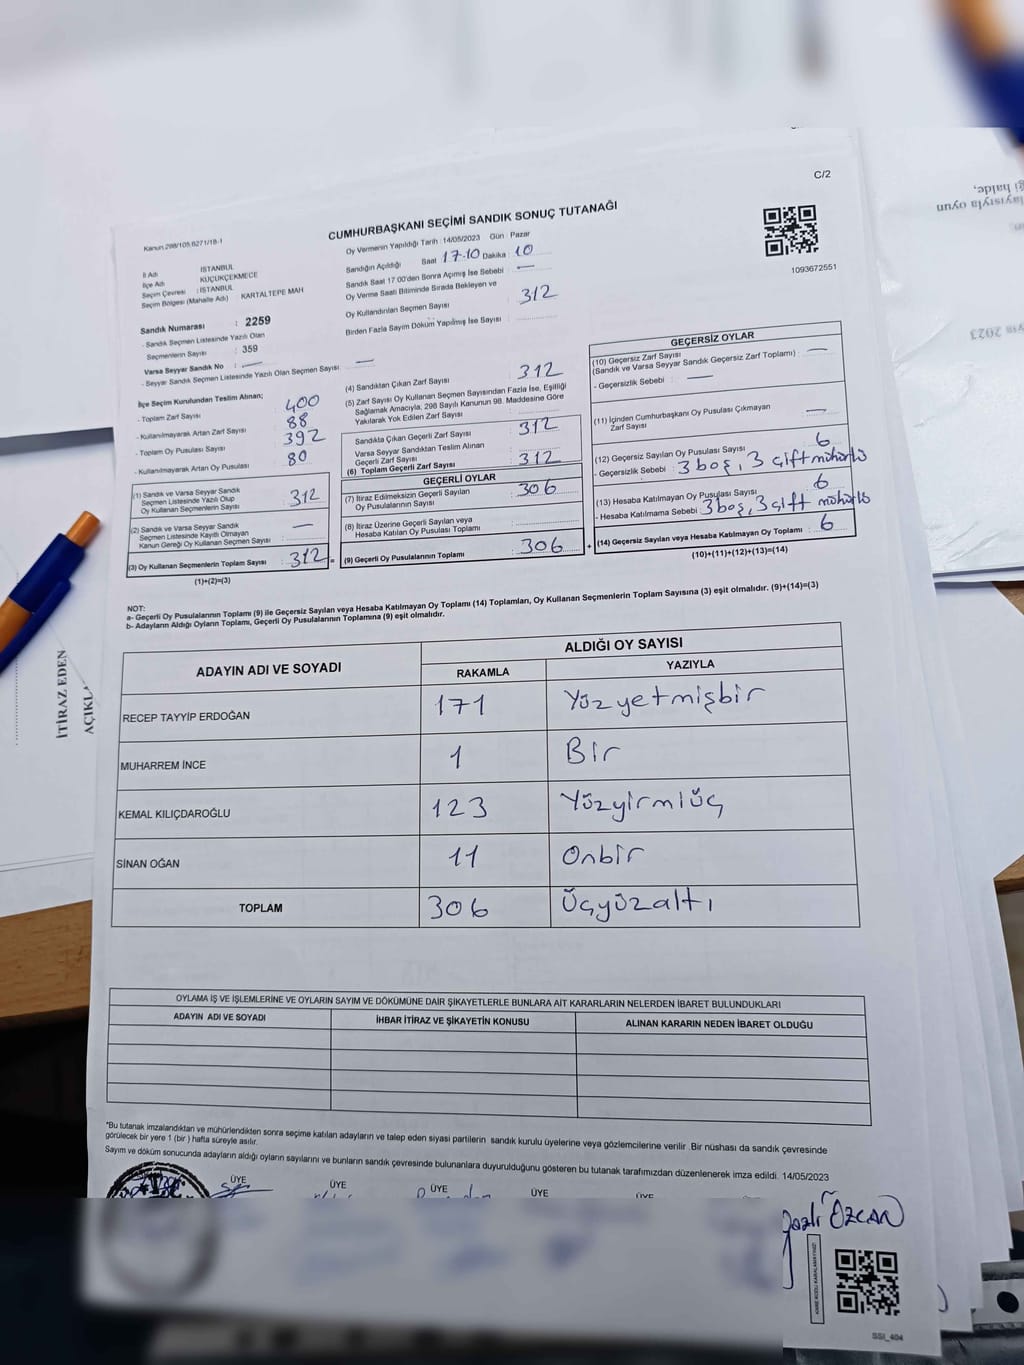 C/2
Kanun 298/105,6271/18-1
CUMHURBAŞKANI SEÇİMİ SANDIK SONUÇ TUTANAĞI
1093672551
İl Adı İSTANBUL
İlçe Adı KÜÇÜKÇEKMECE
Seçim Çevresi : İSTANBUL
Seçim Bölgesi (Mahalle Adı) KARTALTEPE MAH
Oy Vermenin Yapıldığı Tarih : 14/05/2023 Gün : Pazar
Sandığın Açıldığı Saat 17-10 Dakika 10
Sandık Saat 17:00'den Sonra Açımış İse Sebebi : —
Oy Verme Saati Bitiminde Sırada Bekleyen ve
Oy Kullandırılan Seçmen Sayısı : 312
Birden Fazla Sayım Döküm Yapılmış İse Sayısı :
Sandık Numarası : 2259
- Sandık Seçmen Listesinde Yazılı Olan
Seçmenlerin Sayısı : 359
Varsa Seyyar Sandık No : —
- Seyyar Sandık Seçmen Listesinde Yazılı Olan Seçmen Sayısı : —
İlçe Seçim Kurulundan Teslim Alınan;
- Toplam Zarf Sayısı : 400
- Kullanılmayarak Artan Zarf Sayısı : 88
- Toplam Oy Pusulası Sayısı : 392
- Kullanılmayarak Artan Oy Pusulası : 80
(1) Sandık ve Varsa Seyyar Sandık
Seçmen Listesinde Yazılı Olup
Oy Kullanan Seçmenlerin Sayısı : 312
(2) Sandık ve Varsa Seyyar Sandık
Seçmen Listesinde Kayıtlı Olmayan
Kanun Gereği Oy Kullanan Seçmen Sayısı : —
(3) Oy Kullanan Seçmenlerin Toplam Sayısı : 312 =
(1)+(2)=(3)
(4) Sandıktan Çıkan Zarf Sayısı : 312
(5) Zarf Sayısı Oy Kullanan Seçmen Sayısından Fazla İse, Eşitliği
Sağlamak Amacıyla, 298 Sayılı Kanunun 98. Maddesine Göre
Yakılarak Yok Edilen Zarf Sayısı :
Sandıkta Çıkan Geçerli Zarf Sayısı : 312
Varsa Seyyar Sandıktan Teslim Alınan
Geçerli Zarf Sayısı
(6) Toplam Geçerli Zarf Sayısı : 312
GEÇERLİ OYLAR
(7) İtiraz Edilmeksizin Geçerli Sayılan
Oy Pusulalarının Sayısı : 306
(8) İtiraz Üzerine Geçerli Sayılan veya
Hesaba Katılan Oy Pusulası Toplamı :
(9) Geçerli Oy Pusulalarının Toplamı : 306 +
GEÇERSİZ OYLAR
(10) Geçersiz Zarf Sayısı
(Sandık ve Varsa Seyyar Sandık Geçersiz Zarf Toplamı) : —
- Geçersizlik Sebebi : —
(11) İçinden Cumhurbaşkanı Oy Pusulası Çıkmayan
Zarf Sayısı : —
(12) Geçersiz Sayılan Oy Pusulası Sayısı : 6
- Geçersizlik Sebebi : 3 boş, 3 çift mühürlü
(13) Hesaba Katılmayan Oy Pusulası Sayısı : 6
- Hesaba Katılmama Sebebi : 3 boş, 3 çift mühürlü
(14) Geçersiz Sayılan veya Hesaba Katılmayan Oy Toplamı : 6
(10)+(11)+(12)+(13)=(14)
NOT:
a- Geçerli Oy Pusulalarının Toplamı (9) ile Geçersiz Sayılan veya Hesaba Katılmayan Oy Toplamı (14) Toplamları, Oy Kullanan Seçmenlerin Toplam Sayısına (3) eşit olmalıdır. (9)+(14)=(3)
b- Adayların Aldığı Oyların Toplamı, Geçerli Oy Pusulalarının Toplamına (9) eşit olmalıdır.
ADAYIN ADI VE SOYADI ALDIĞI OY SAYISI
RAKAMLA YAZIYLA
RECEP TAYYİP ERDOĞAN 171 Yüzyetmişbir
MUHARREM İNCE 1 Bir
KEMAL KILIÇDAROĞLU 123 Yüzyirmiüç
SİNAN OĞAN 11 Onbir
TOPLAM 306 Üçyüzaltı
OYLAMA İŞ VE İŞLEMLERİNE VE OYLARIN SAYIM VE DÖKÜMÜNE DAİR ŞİKAYETLERLE BUNLARA AİT KARARLARIN NELERDEN İBARET BULUNDUKLARI
ADAYIN ADI VE SOYADI İHBAR İTİRAZ VE ŞİKAYETİN KONUSU ALINAN KARARIN NEDEN İBARET OLDUĞU
*Bu tutanak imzalandıktan ve mühürlendikten sonra seçime katılan adayların ve talep eden siyasi partilerin sandık kurulu üyelerine veya gözlemcilerine verilir. Bir nüshası da sandık çevresinde
görülecek bir yere 1 (bir) hafta süreyle asılır.
Sayım ve döküm sonucunda adayların aldığı oyların sayılarını ve bunların sandık çevresinde bulunanlara duyurulduğunu gösteren bu tutanak tarafımızdan düzenlenerek imza edildi. 14/05/2023
ÜYE ÜYE ÜYE ÜYE ÜYE
ÖZCAN
SSI_404
İTİRAZ EDEN
AÇIKL
ği halde,
layısıyla oyun
ıs 2023